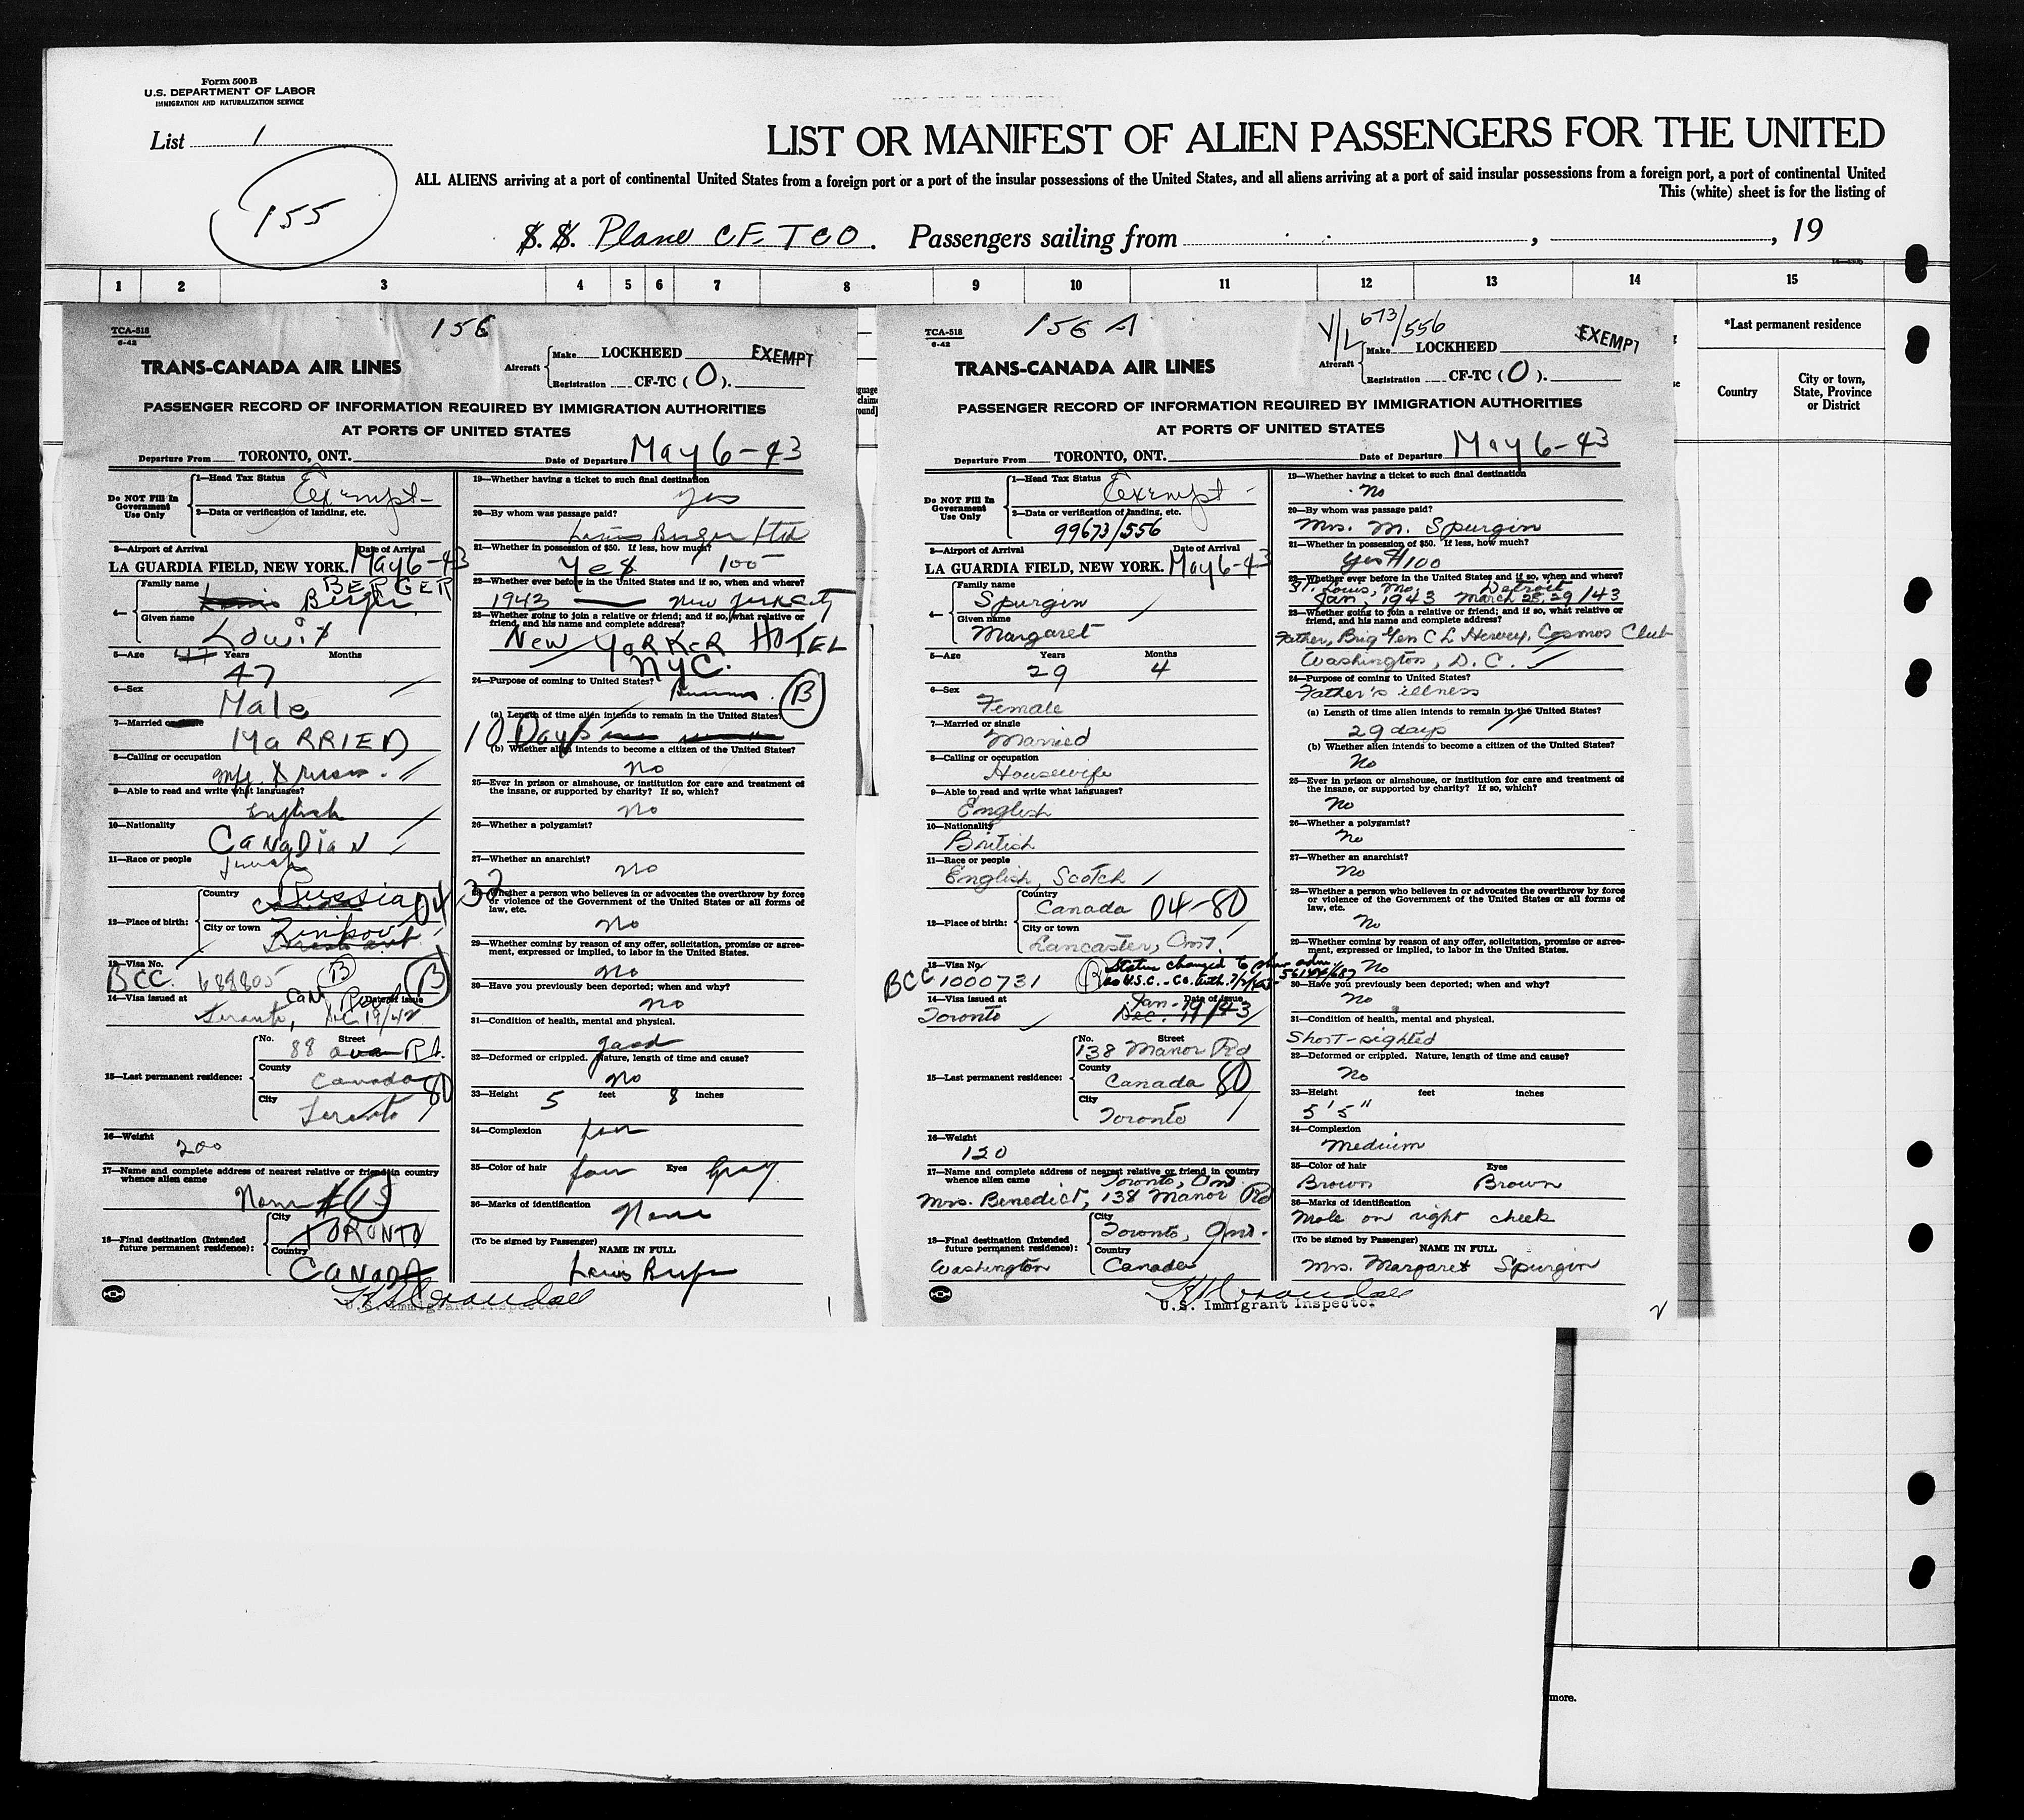 Form 500B
U.S. DEPARTMENT OF LABOR
IMMIGRATION AND NATURALIZATION SERVICE
List 1
155
LIST OR MANIFEST OF ALIEN PASSENGERS FOR THE UNITED
ALL ALIENS arriving at a port of continental United States from a foreign port or a port of the insular possessions of the United States, and all aliens arriving at a port of said insular possessions from a foreign port, a port of continental United
This (white) sheet is for the listing of
S. S. Plane CF. TCO. Passengers sailing from , , 19
1 2 3 4 5 6 7 8 9 10 11 12 13 14 15
*Last permanent residence
Country
City or town, State, Province or District
more.
156
TCA-518
6-42
TRANS-CANADA AIR LINES
Aircraft Make LOCKHEED EXEMPT
Registration CF-TC ( O ).
PASSENGER RECORD OF INFORMATION REQUIRED BY IMMIGRATION AUTHORITIES
AT PORTS OF UNITED STATES
Departure From TORONTO, ONT. Date of Departure May 6-43
Do NOT Fill In Government Use Only
1—Head Tax Status Exempt-
2—Data or verification of landing, etc.
3—Airport of Arrival Date of Arrival
LA GUARDIA FIELD, NEW YORK. May 6-43
BERGER
4— Family name Louis Berger
Given name Louis
5—Age 47 Years Months
47
6—Sex Male
7—Married or single
MARRIED
8—Calling or occupation
Mfg.
9—Able to read and write what languages?
English
10—Nationality
CANADIAN
11—Race or people
Jewish
12—Place of birth: Country Russia 04 32
City or town
13—Visa No.
BCC. 688805 (B) (B)
14—Visa issued at Date of issue
Toronto, Can Dec 19/42
15—Last permanent residence: No. Street 88 Rd.
County Canada 80
City Toronto
16—Weight
200
17—Name and complete address of nearest relative or friend in country whence alien came
None # 15
18—Final destination (Intended future permanent residence): City TORONTO
Country CANADA
19—Whether having a ticket to such final destination
yes
20—By whom was passage paid?
Louis Berger Ltd
21—Whether in possession of $50. If less, how much?
Yes 100-
22—Whether ever before in the United States and if so, when and where?
1943 — New York City
23—Whether going to join a relative or friend; and if so, what relative or friend, and his name and complete address?
NEW YORKER HOTEL
NYC.
24—Purpose of coming to United States?
Business. (B)
(a) Length of time alien intends to remain in the United States?
10 Days
(b) Whether alien intends to become a citizen of the United States?
no
25—Ever in prison or almshouse, or institution for care and treatment of the insane, or supported by charity? If so, which?
no
26—Whether a polygamist?
27—Whether an anarchist?
no
28—Whether a person who believes in or advocates the overthrow by force or violence of the Government of the United States or all forms of law, etc.
no
29—Whether coming by reason of any offer, solicitation, promise or agreement, expressed or implied, to labor in the United States.
no
30—Have you previously been deported; when and why?
no
31—Condition of health, mental and physical.
good
32—Deformed or crippled. Nature, length of time and cause?
no
33—Height 5 feet 8 inches
34—Complexion fair
35—Color of hair fair Eyes Gray
36—Marks of identification
None
(To be signed by Passenger) NAME IN FULL
Louis Berger
U.S. Immigrant Inspector
1
156 A
V/L 673/556
TCA-518
6-42
TRANS-CANADA AIR LINES
Aircraft Make LOCKHEED EXEMPT
Registration CF-TC ( O ).
PASSENGER RECORD OF INFORMATION REQUIRED BY IMMIGRATION AUTHORITIES
AT PORTS OF UNITED STATES
Departure From TORONTO, ONT. Date of Departure May 6-43
Do NOT Fill In Government Use Only
1—Head Tax Status Exempt-
2—Data or verification of landing, etc.
99673/556
3—Airport of Arrival Date of Arrival
LA GUARDIA FIELD, NEW YORK. May 6-43
4— Family name Spurgin
Given name Margaret
5—Age Years Months
29 4
6—Sex
Female
7—Married or single
Married
8—Calling or occupation
Housewife
9—Able to read and write what languages?
English
10—Nationality
British
11—Race or people
English, Scotch
12—Place of birth: Country Canada 04-80
City or town Lancaster, Ont.
13—Visa No.
BCC 1000731 Status changed to show adm. as U.S.C. - Co.
14—Visa issued at Date of issue
Toronto Jan. 19/43
15—Last permanent residence: No. Street 138 Manor Rd
County Canada 80
City Toronto
16—Weight
120
17—Name and complete address of nearest relative or friend in country whence alien came
Toronto, Ont
Mrs. Benedict, 138 Manor Rd
18—Final destination (Intended future permanent residence): City Toronto, Ont.
Washington Country Canada
19—Whether having a ticket to such final destination
No
20—By whom was passage paid?
Mrs. M. Spurgin
21—Whether in possession of $50. If less, how much?
Yes $100
22—Whether ever before in the United States and if so, when and where?
St. Louis, Mo, Detroit
Jan, 1943 March 28, 29/43
23—Whether going to join a relative or friend; and if so, what relative or friend, and his name and complete address?
Father, Brig Gen C L Hervey, Cosmos Club
Washington, D.C.
24—Purpose of coming to United States?
Father's illness
(a) Length of time alien intends to remain in the United States?
29 days
(b) Whether alien intends to become a citizen of the United States?
No
25—Ever in prison or almshouse, or institution for care and treatment of the insane, or supported by charity? If so, which?
No
26—Whether a polygamist?
No
27—Whether an anarchist?
No
28—Whether a person who believes in or advocates the overthrow by force or violence of the Government of the United States or all forms of law, etc.
No
29—Whether coming by reason of any offer, solicitation, promise or agreement, expressed or implied, to labor in the United States.
No
30—Have you previously been deported; when and why?
No
31—Condition of health, mental and physical.
Short-sighted
32—Deformed or crippled. Nature, length of time and cause?
No
33—Height feet inches
5' 5"
34—Complexion
Medium
35—Color of hair Eyes
Brown Brown
36—Marks of identification
Mole on right cheek
(To be signed by Passenger) NAME IN FULL
Mrs. Margaret Spurgin
U.S. Immigrant Inspector
2